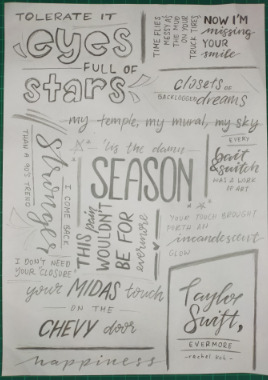 TOLERATE IT
eyes
FULL OF
stars
TIME FLIES
MESSY AS
THE MUD
ON YOUR
TRUCK TIRES
NOW I'M
missing
YOUR
smile
closets OF
BACKLOGGED dreams
my temple, my mural, my sky
'tis the damn
SEASON
EVERY
bait
& switch
WAS A WORK
OF ART
stronger
I COME BACK
THAN A 90'S TREND
THIS pain
WOULDN'T
BE FOR
evermore
I DON'T NEED
YOUR "CLOSURE"
YOUR TOUCH BROUGHT
FORTH AN
incandescent
GLOW
your MIDAS touch
ON THE
CHEVY door
happiness
Taylor
Swift,
EVERMORE